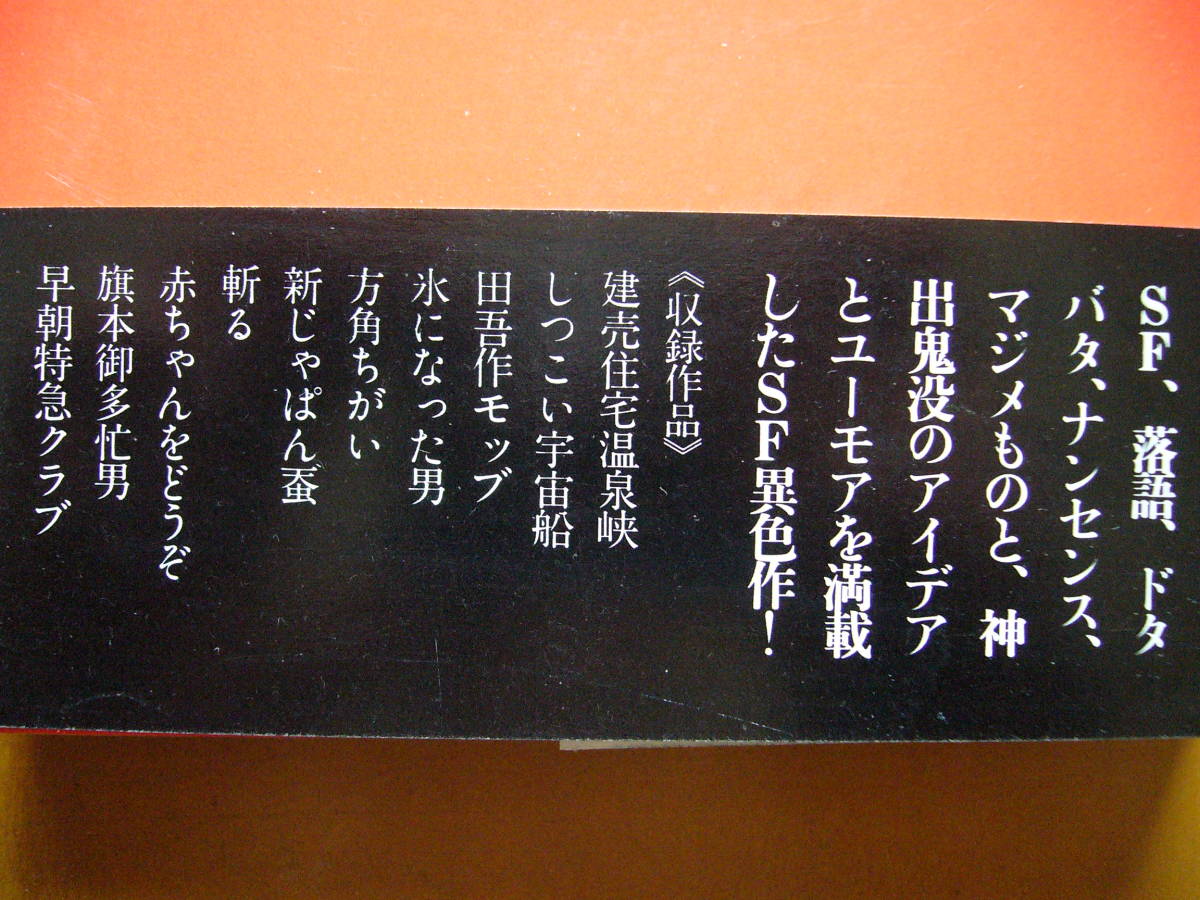 SF、落語、ドタ
バタ、ナンセンス、
マジメものと、神
出鬼没のアイデア
とユーモアを満載
したSF異色作!
《収録作品》
建売住宅温泉峡
しつこい宇宙船
田吾作モッブ
氷になった男
方角ちがい
新じゃぱん蚕
斬る
赤ちゃんをどうぞ
旗本御多忙男
早朝特急クラブ